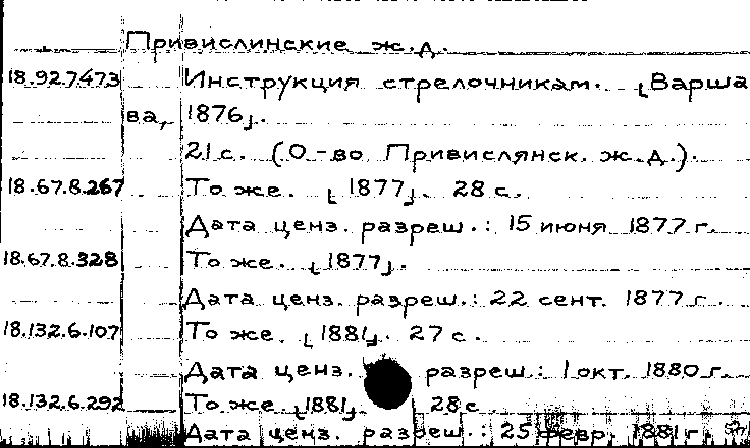 Привислинские ж.д.
18.927473 Инструкция стрелочникам. [Варша
ва, 1876].
21 с. (О-во Привислянск. ж.д.).
18.67.8.267 То же. [1877]. 28 с.
Дата ценз. разреш.: 15 июня 1877 г.
18.67.8.328 То же. [1877].
Дата ценз. разреш.: 22 сент. 1877 г.
18.132.6.107 То же. [1881]. 27 с.
Дата ценз. разреш.: 1 окт. 1880 г.
18.132.6.292 То же. [1881]. 28 с
Дата ценз. разреш.: 25 февр. 1881 г.